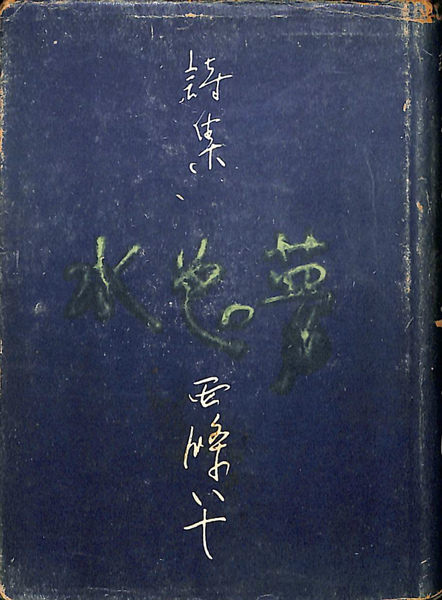 詩集、
水色の夢
西條八十